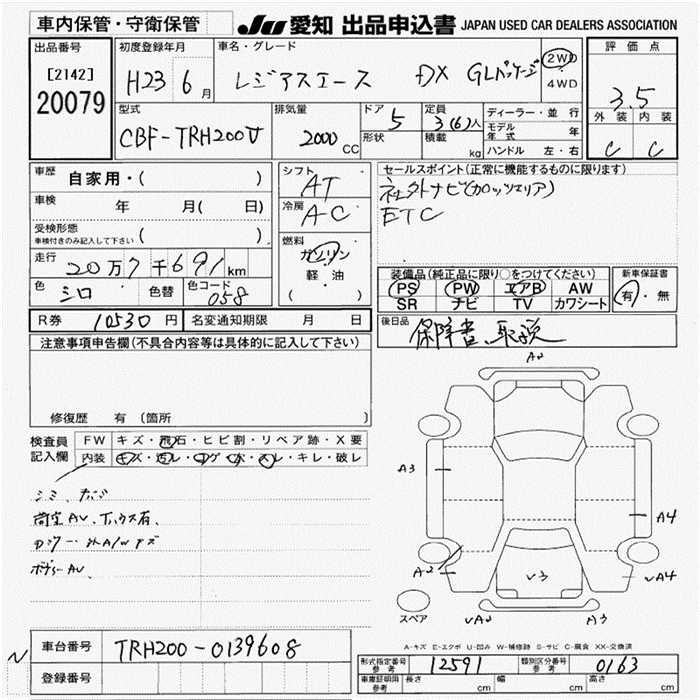 車内保管・守衛保管
JU 愛知 出品申込書 JAPAN USED CAR DEALERS ASSOCIATION
出品番号
[2142]
20079
初度登録年月
H23 6月
車名・グレード
レジアスエース DX GLパッケージ
2WD
4WD
評価点
3.5
外装 内装
C C
型式
CBF-TRH200V
排気量
2000 CC
ドア 5
形状
定員 3(6)人
積載 kg
ディーラー・並行
モデル年式 年
ハンドル 左・右
車歴 自家用・( )
車検 年 月( 日)
受検形態
車検付きのみ記入して下さい ( )
走行 20万7千691km
色 シロ 色替 色コード 058
シフト AT
冷房 AC
燃料
ガソリン
軽・油
( )
セールスポイント(正常に機能するものに限ります)
社外ナビ(カロッツェリア)
ETC
装備品(純正品に限り○をつけてください)
PS PW エアB AW
SR ナビ TV カワシート
新車保証書
有・無
R券 10530円 名変通知期限 月 日
後日品 保障書、取説
注意事項申告欄(不具合内容等は具体的に記入して下さい)
修復歴 有(箇所
検査員記入欄
FW キズ・飛石・ヒビ割・リペア跡・X要
内装 キズ・汚レ・コゲ・穴・スレ・キレ・破レ
シミ、
荷室AV、
ボディーAV、
A2
A3
A4
A2
V3
VA4
VA2
A3
スペア
A-キズ E-エクボ U-凹み W-補修跡 S-サビ C-腐食 XX-交換済
車台番号 TRH200-0139608
登録番号
形式指定番号 参考 12591 類別区分番号 参考 0163
車庫証明用 参考 長さ cm 幅 cm 高さ cm